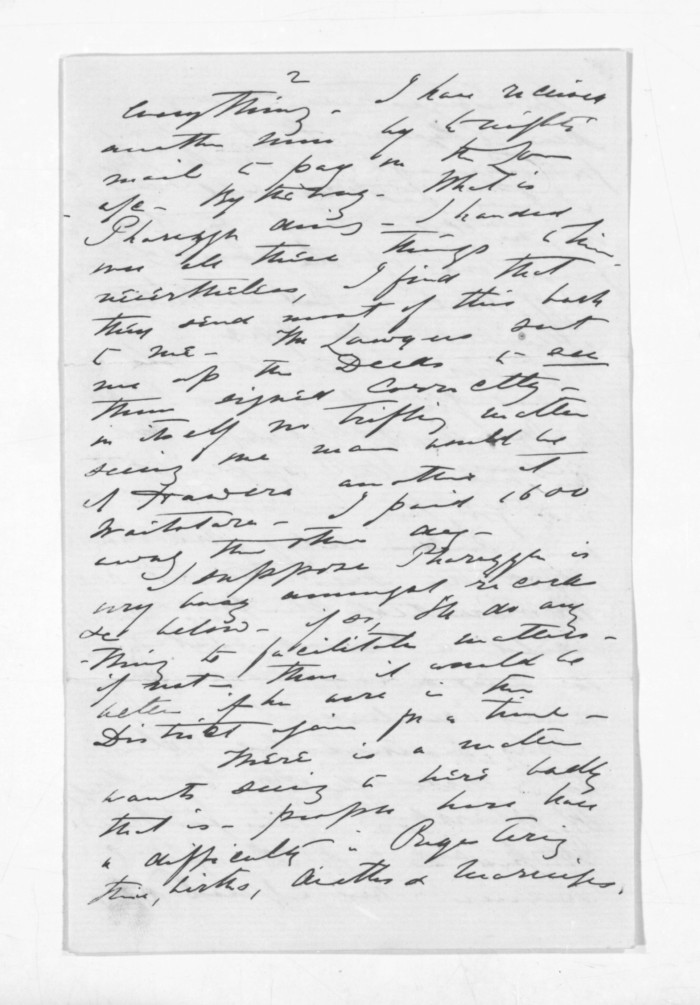 2
everything - I have received
another mem by to night's
mail to pay in to Jem
a/c - By the way - What is
Pharazyn doing - I handed
over all these things to him
nevertheless, I find that
they send most of this back
to me - The Lawyers sent
me up the Deeds to see
them signed correctly -
in itself no trifling matter
seeing one man would be
at Hawera another at
Waitotara - I paid 1600
away the other day -
I suppose Pharazyn is
very busy amongst records
&c below - if so, I'll do any
-thing to facilitate matters -
if not - then it would be
better if he were in the
District again for a time -
There is a matter
wants seeing to here badly
that is - people here have
a difficulty in Registering
their, births, deaths & marriages,